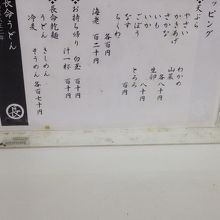 ッピング
◆天ぷら
やさい
かきあげ
さかな
いか
なす
ちくわ
各百円
海老 百二十円
わかめ
山菜
各八十円
生卵
とろろ
八十円
百円
◆お持ち帰り
白蒸 百円
汁一杯 百円
◆長命乾麺
うどん
冷麦
きしめん
そうめん
各百七十円
長命うどん
長